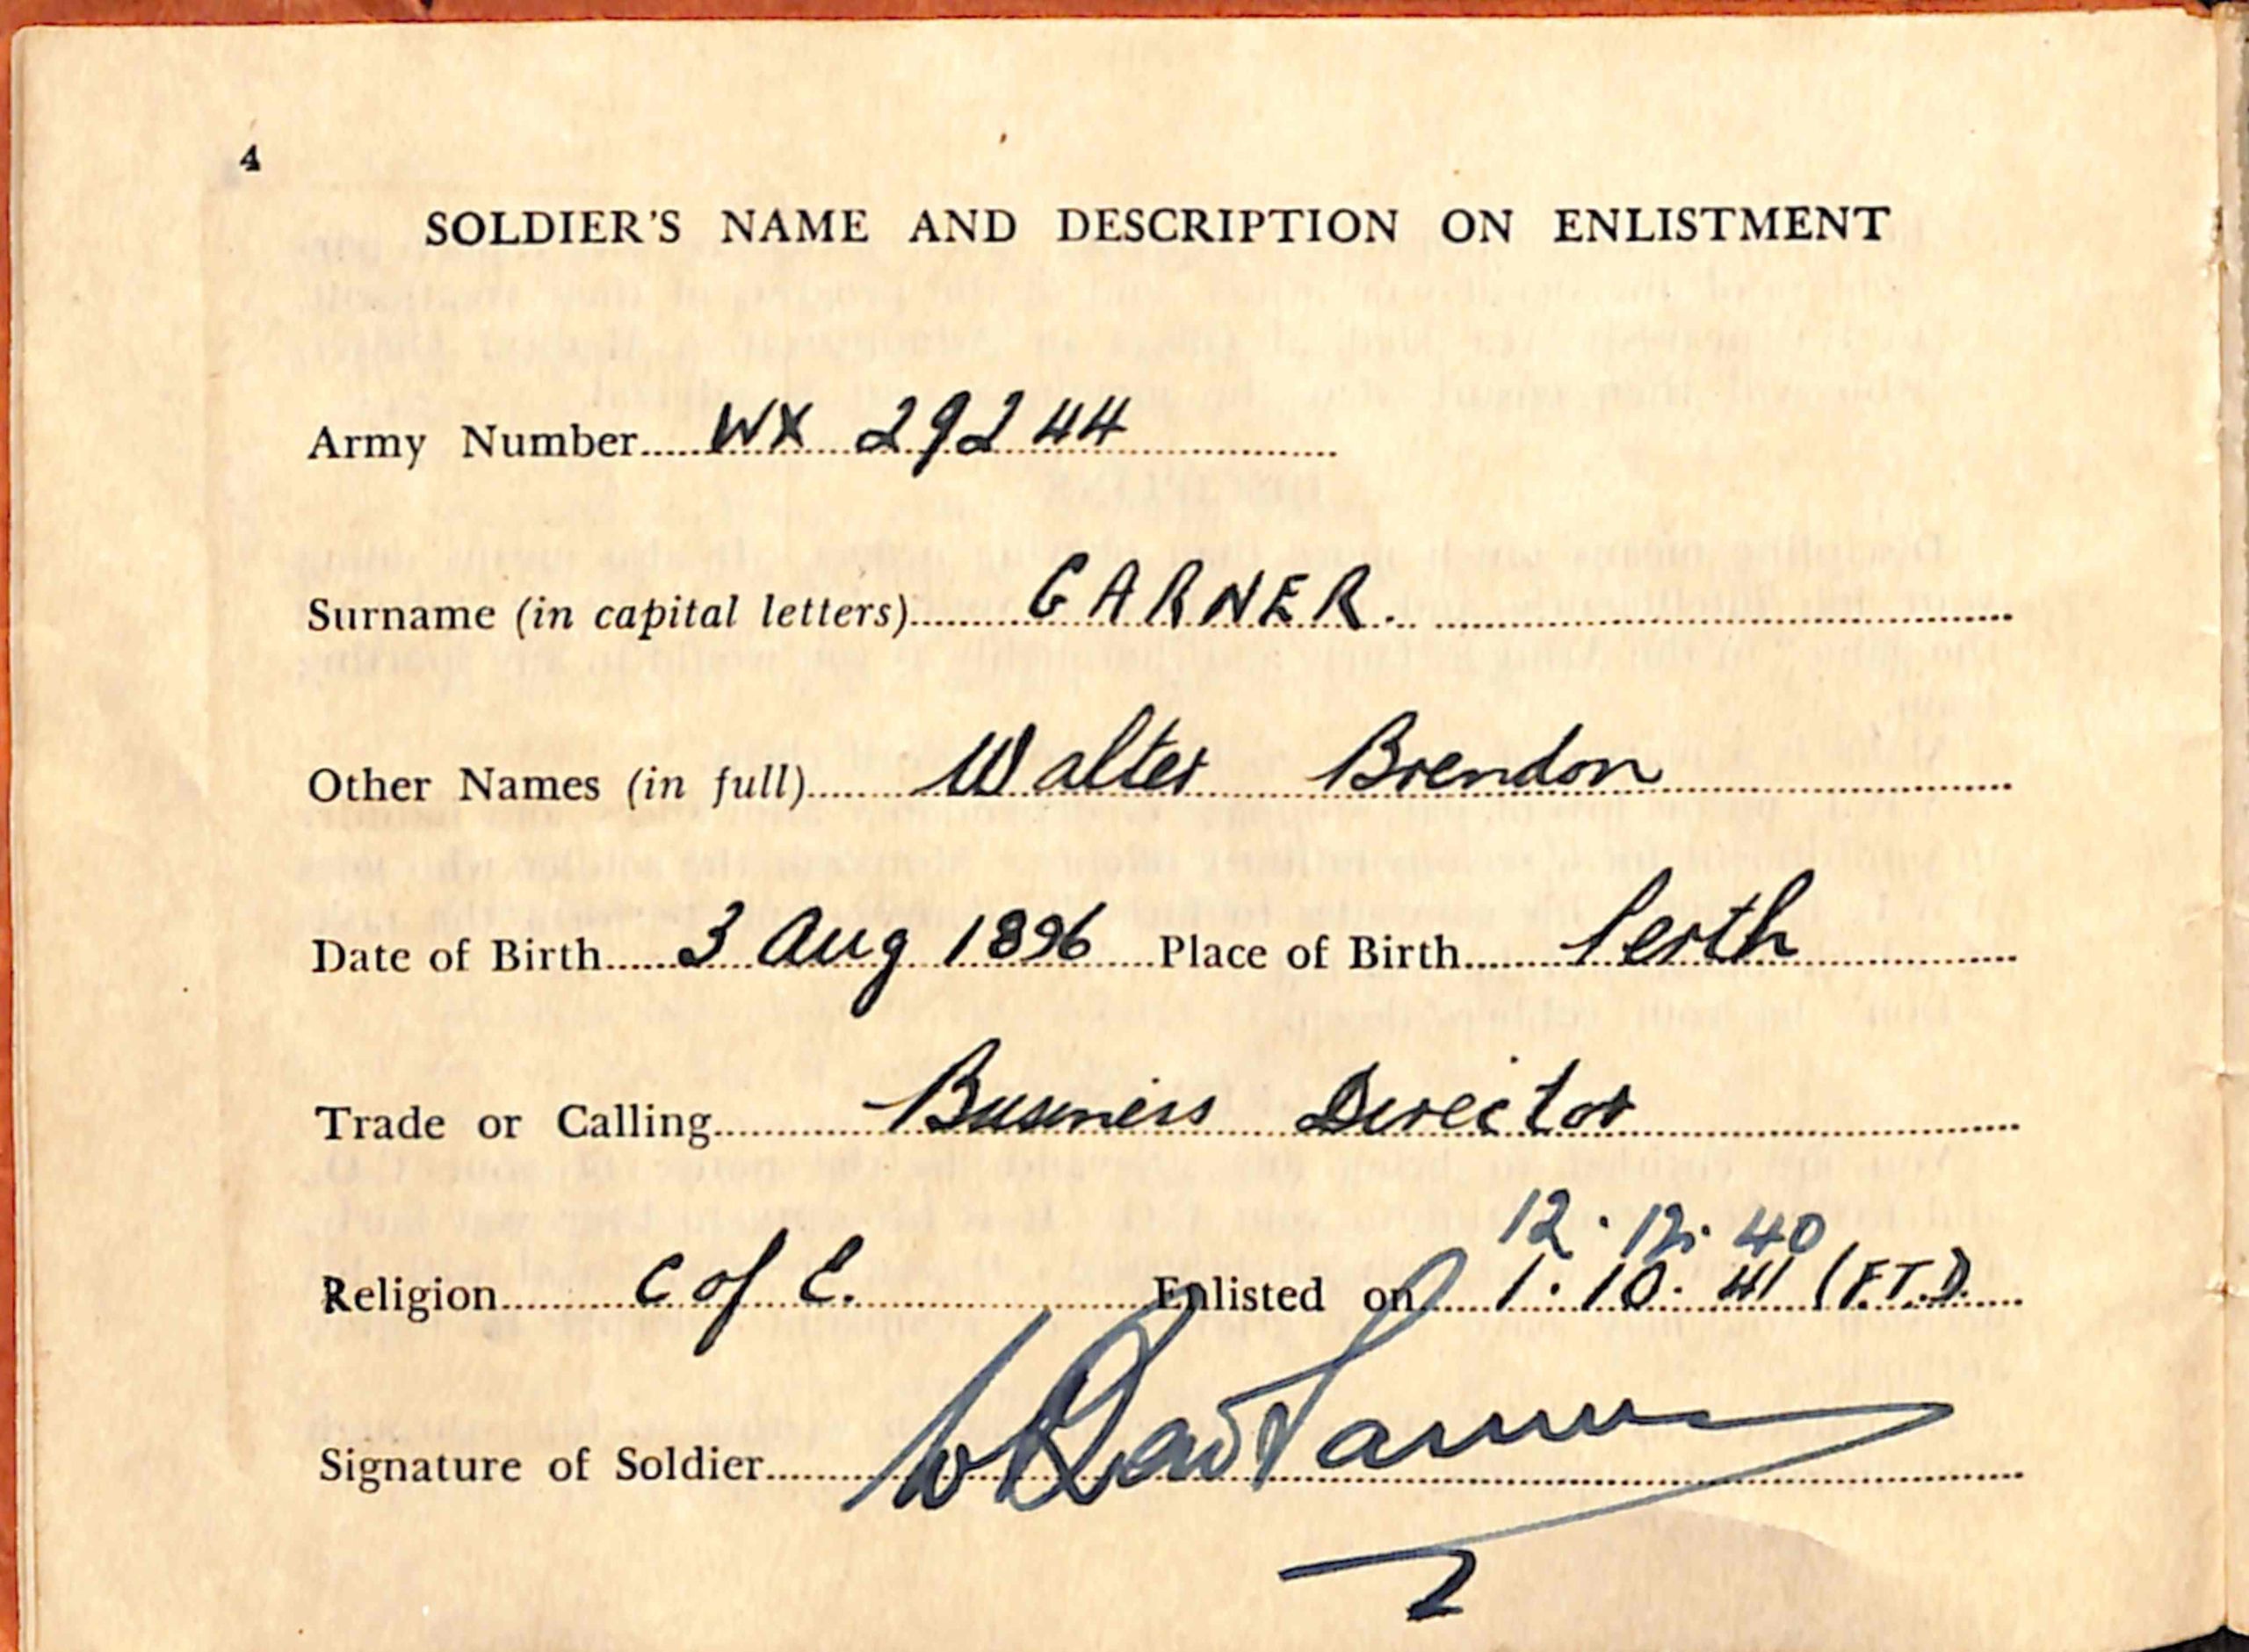 4
SOLDIER'S NAME AND DESCRIPTION ON ENLISTMENT
Army Number.....WX 29244
Surname (in capital letters).....GARNER.
Other Names (in full).....Walter Brendon
Date of Birth.....3 Aug 1896.....Place of Birth.....Perth
Trade or Calling.....Business Director
12.12.40
Religion.....C of E......Enlisted on.....1.10.41 (F.T.D.
Signature of Soldier.....